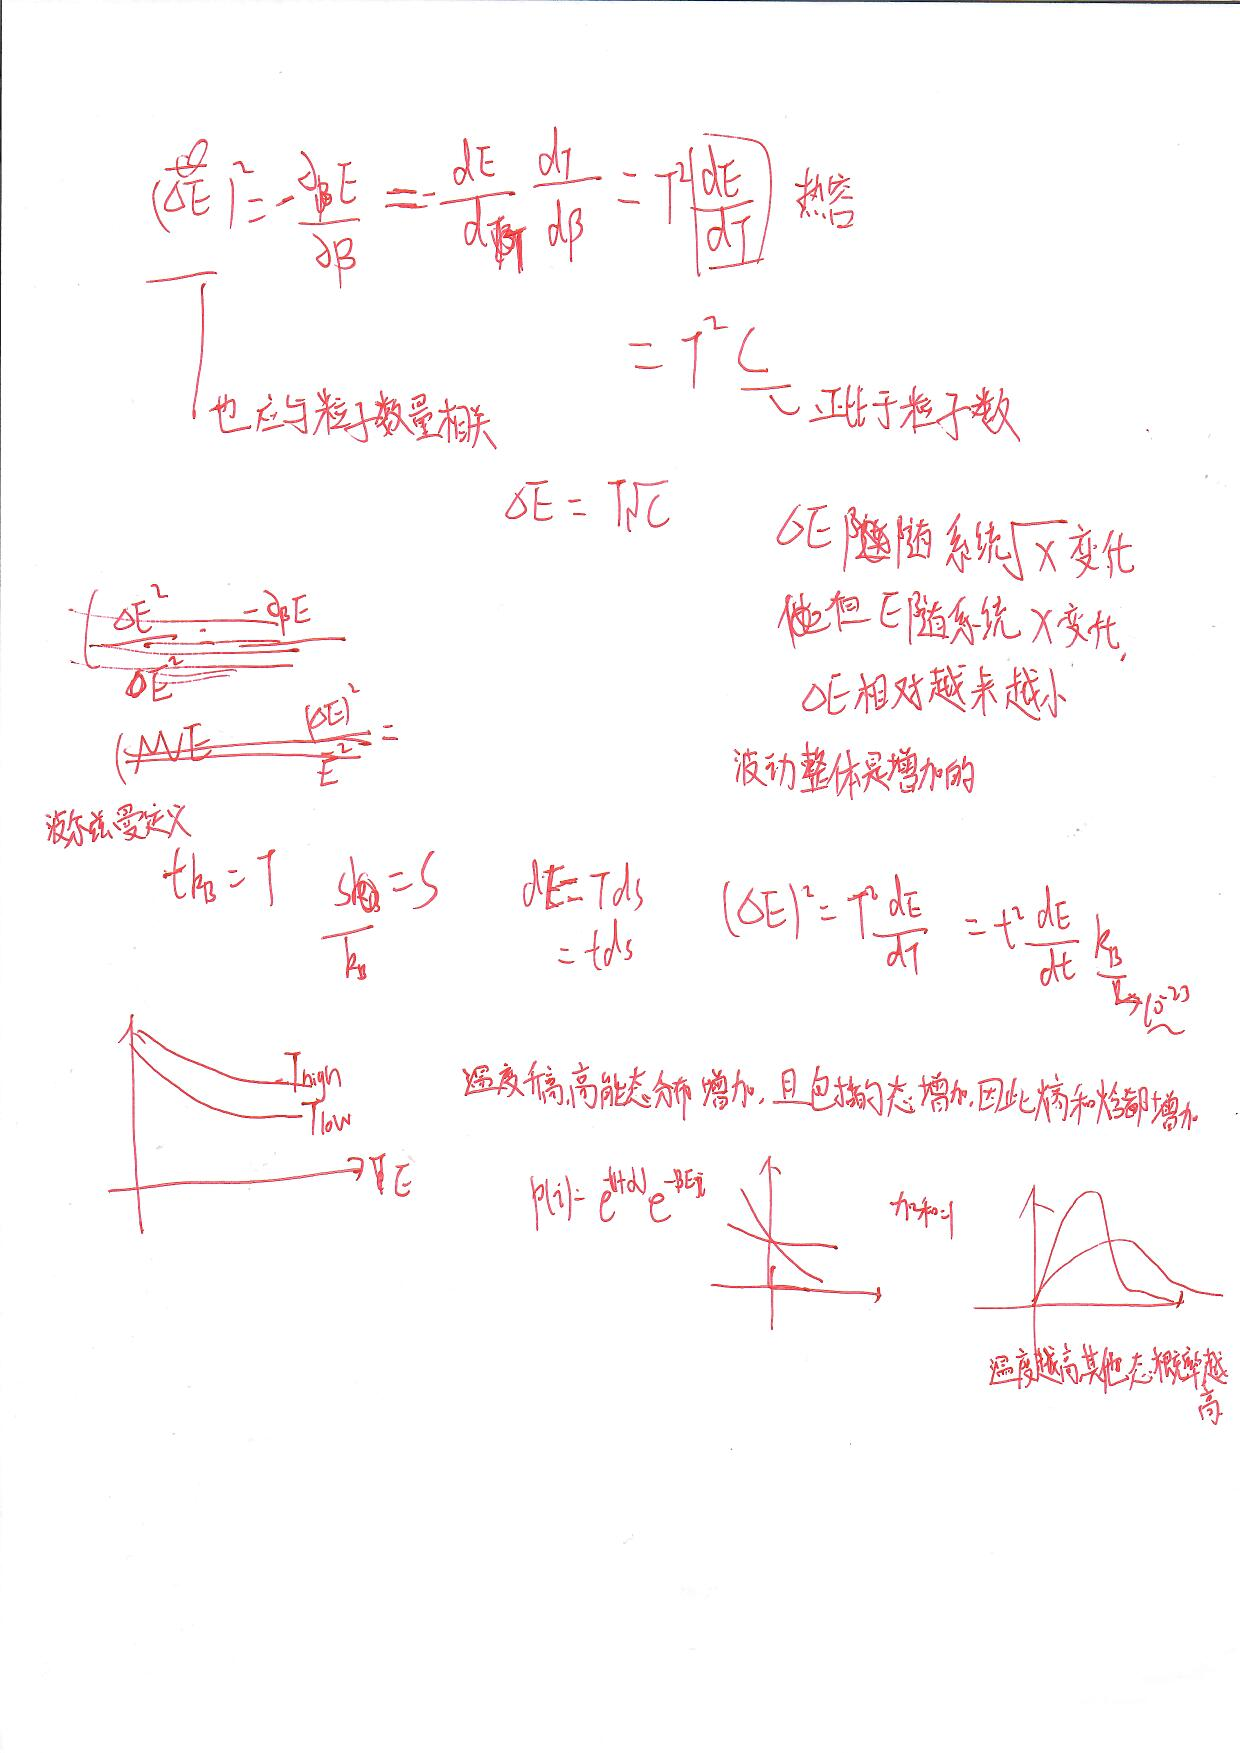 (ΔE)² = -∂E/∂β = -dE/dT dT/dβ = T² dE/dT 热容
= T² C
也应与粒子数量相关
正比于粒子数
ΔE = T√C
ΔE随系统√x变化
但E随系统x变化,
ΔE相对越来越小
波动整体是增加的
ΔE² -∂βE
ΔE²
(ΔE)²/E² =
波尔兹曼定义
tkB = T S/kB = S dE = Tds (ΔE)² = T² dE/dT = t² dE/dt kB
= tds
10⁻²³
Thigh
Tlow
E
温度升高,高能态分布增加,且包括的态增加,因此熵和焓都增加
p(i) = e^-(1+α) e^-βEi
加和=1
温度越高其他态概率越
高